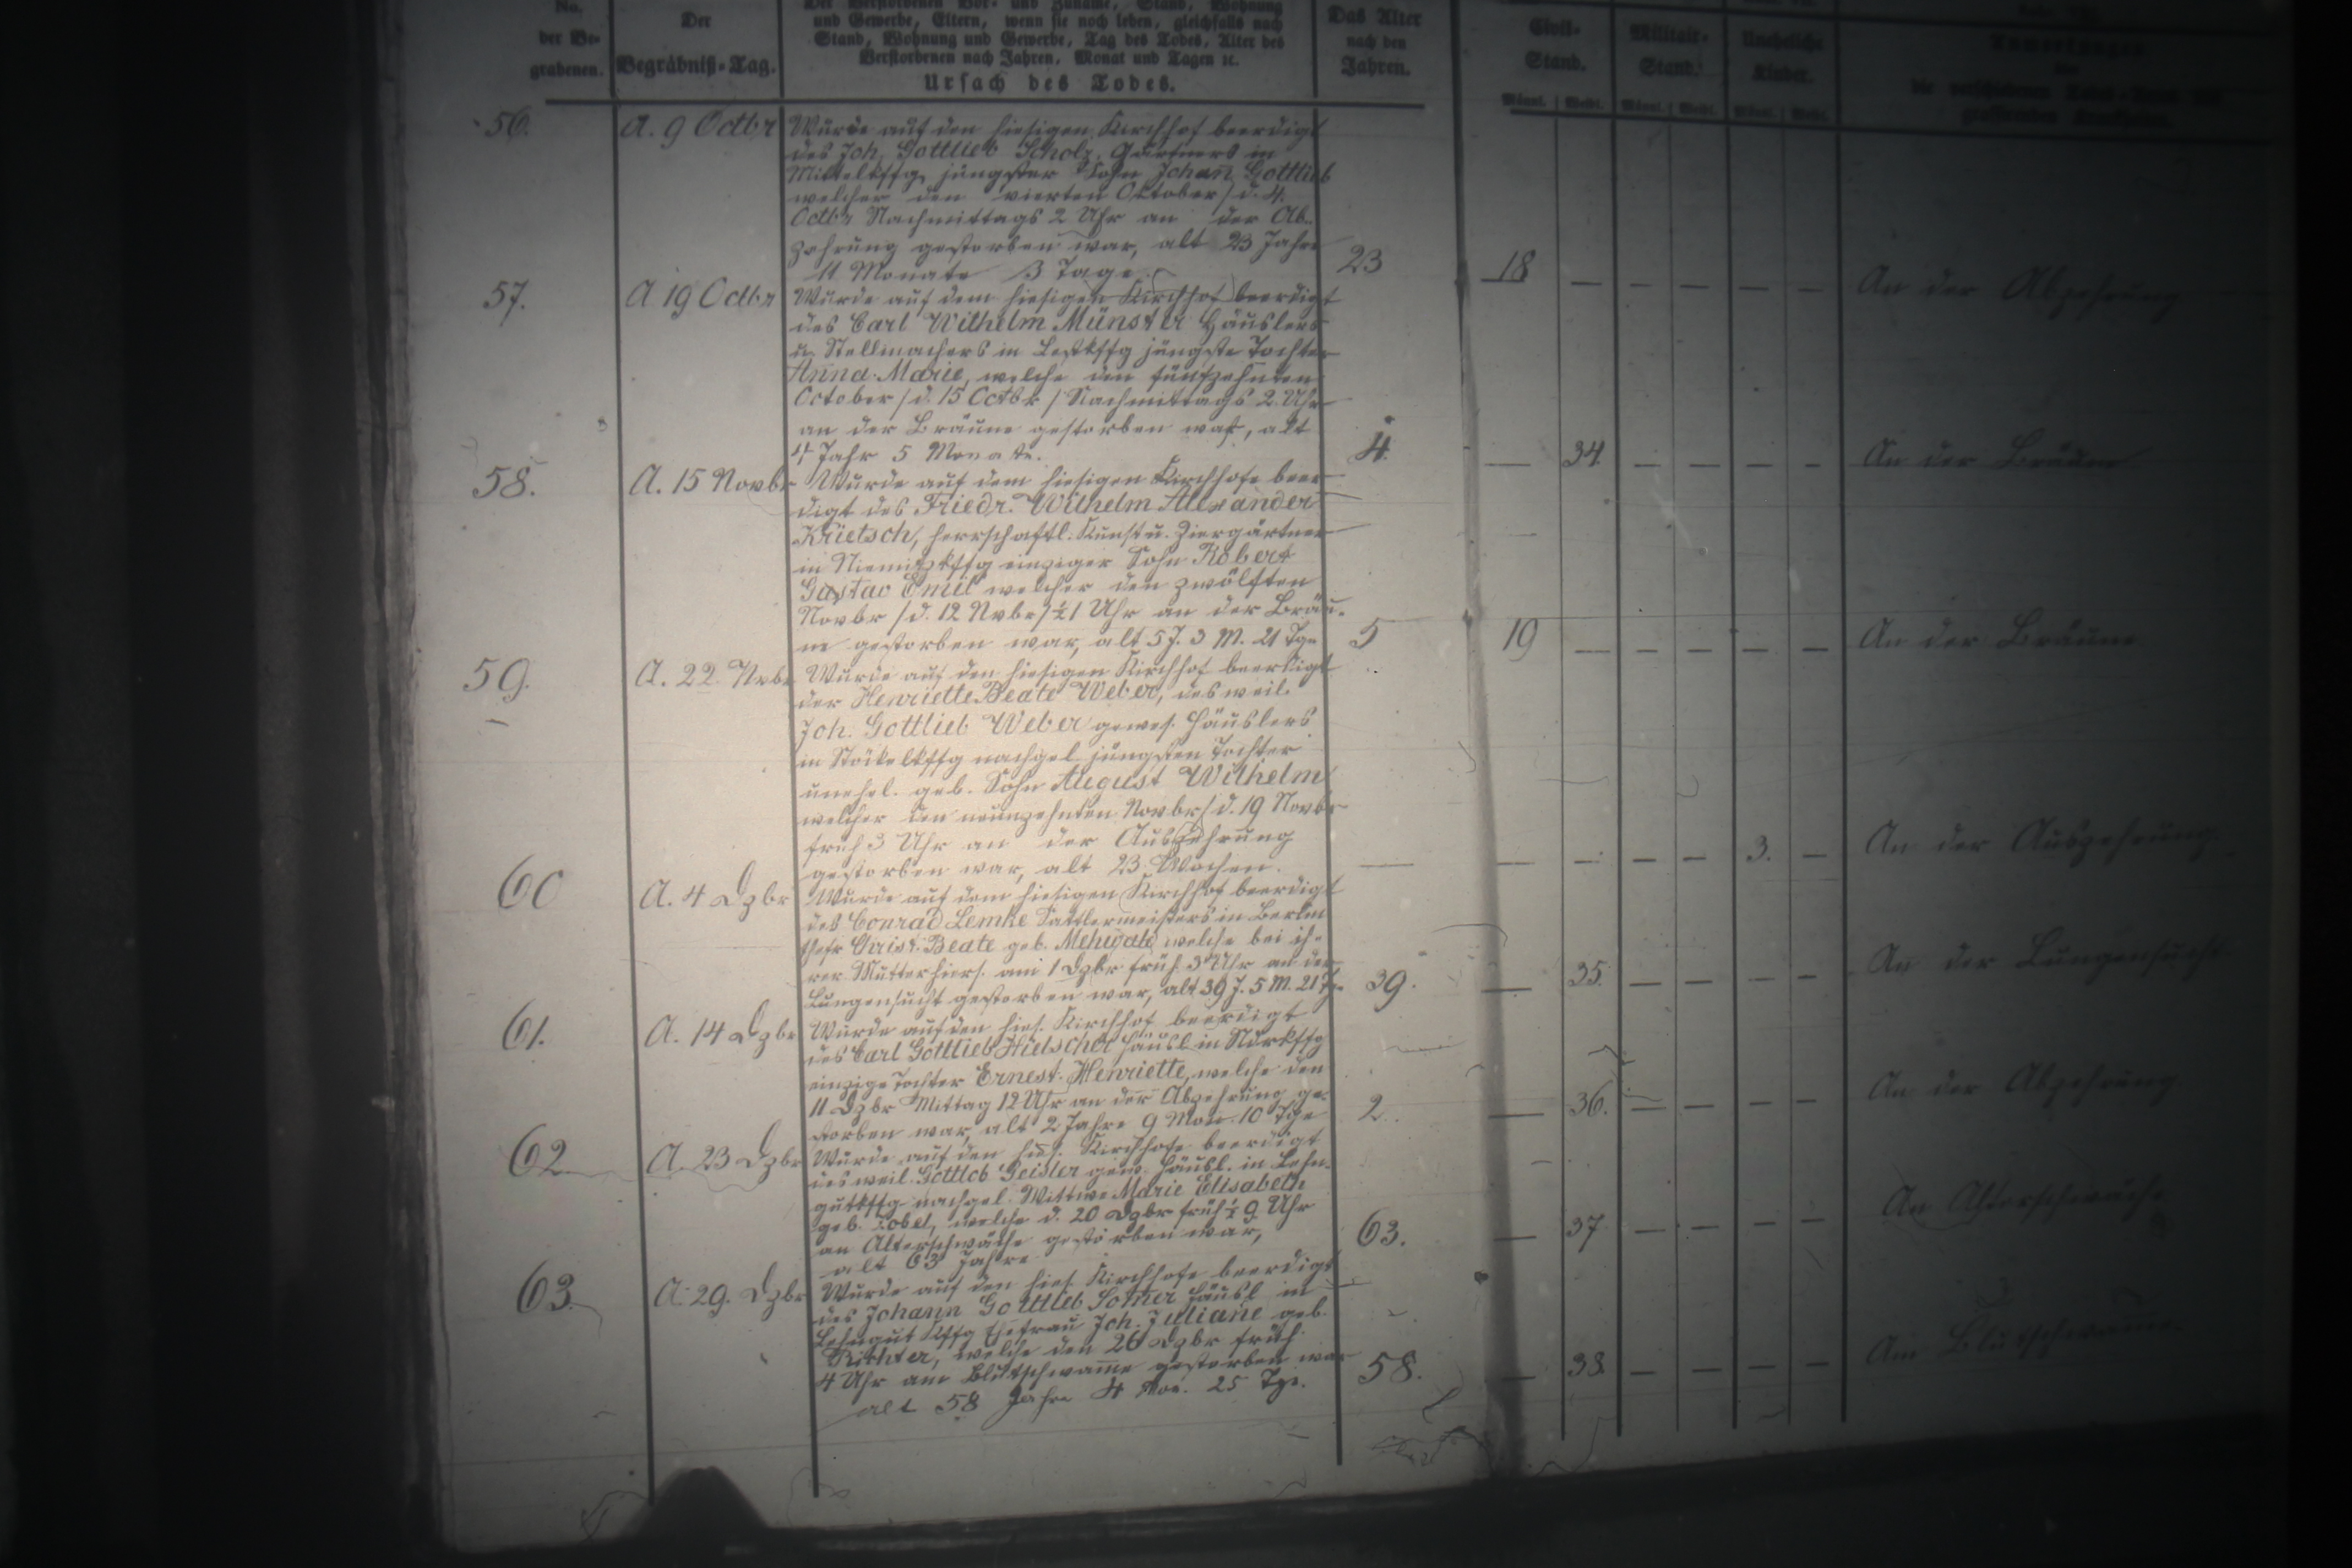 No.
der Be-
grabenen.
Der
Begräbniß-Tag.
Der Verstorbenen Vor- und Zuname, Stand, Wohnung
und Gewerbe, Eltern, wenn sie noch leben, gleichfalls nach
Stand, Wohnung und Gewerbe, Tag des Todes, Alter des
Verstorbenen nach Jahren, Monat und Tagen ꝛc.
Ursach des Todes.
Das Alter
nach den
Jahren.
Civil-
Stand.
Militair-
Stand.
Uneheliche
Kinder.
Männl. | Weibl. Männl. | Weibl. Männl. | Weibl.
56. A. 9 Octbr Wurde auf den hiesigen Kirchhof beerdigt
des Joh. Gottlieb Scholz, Gärtners in
Mittelkffg. jüngster Sohn Johan̄ Gottlieb
welcher den vierten October / d. 4.
Octbr Nachmittags 2 Uhr an der Ab-
zehrung gestorben war, alt 23 Jahre
11 Monate 3 Tage. 23 18 — — — — — An der Abzehrung
57. A 19 Octbr Wurde auf dem hiesigen Kirchhof beerdigt
des Carl Wilhelm Münster Häuslers
u. Stellmachers in kffg jüngste Tochter
Anna Marie, welche den fünfzehnten
October / d. 15 Octbr / Nachmittags 2 Uhr
an der Bräune gestorben war, alt
4 Jahr 5 Monate. 4. — 34. — — — — An der Bräune
58. A. 15 Novbr Wurde auf dem hiesigen Kirchhofe beer
digt des Friedr. Wilhelm Alexander
Krietsch, herrschaftl. Kunst u. Ziergärtner
in Niemitzkffg einziger Sohn Robert
Gustav Emil welcher den zwölften
Novbr / d. 12 Nvbr / ½1 Uhr an der Bräu-
ne gestorben war, alt 5 J. 3 M. 21 Tge 5 19 — — — — — An der Bräune
59. A. 22. Nvbr Wurde auf den hiesigen Kirchhof beerdigt
der Henriette Beate Weber, des weil.
Joh. Gottlieb Weber gewes. Häuslers
in Stöckelkffg nachgel. jüngsten Tochter
unehel. geb. Sohn August Wilhelm
welcher den neunzehnten Novbr / d. 19 Novbr
früh 3 Uhr an der Auszehrung
gestorben war, alt 23 Wochen. — — — — — 3. — An der Auszehrung
60 A. 4 Dzbr Wurde auf dem hiesigen Kirchhof beerdigt
des Conrad Lemke Sattlermeisters in Berlin
Ehefr Christ. Beate geb. welche bei ih-
rer Mutter hiers. am 1 Dzbr früh 3 Uhr an der
Lungensucht gestorben war, alt 39 J. 5 M. 21 Tge 39. — 35. — — — — An der Lungensucht
61. A. 14 Dzbr Wurde auf den hies. Kirchhof beerdigt
des Carl Gottlieb Hielscher Häusl in kffg
einzige Tochter Ernest. Henriette, welche den
11 Dzbr Mittag 12 Uhr an der Abzehrung ge-
storben war, alt 2 Jahre 9 Mon. 10 Tge 2. — 36. — — — — An der Abzehrung
62 A. 23 Dzbr Wurde auf den hies. Kirchhofe beerdigt
des weil. Gottlob Geisler gew. Häusl. in Lehn-
gutkffg nachgel. Wittwe Marie Elisabeth
geb. welche d. 20 Dzbr früh ½ 9 Uhr
an Altersschwäche gestorben war,
alt 63 Jahre 63. — 37. — — — — An Altersschwäche
63. A. 29. Dzbr Wurde auf den hies. Kirchhofe beerdigt
des Johann Gottlieb Som̄er Häusl in
Lehngut kffg Ehefrau Joh. Juliane geb.
Richter, welche den 26 Dzbr früh
4 Uhr am Blutschwam̄e gestorben war
alt 58 Jahre 4 Mon. 25 Tge. 58. — 38. — — — — Am Blutschwam̄e.